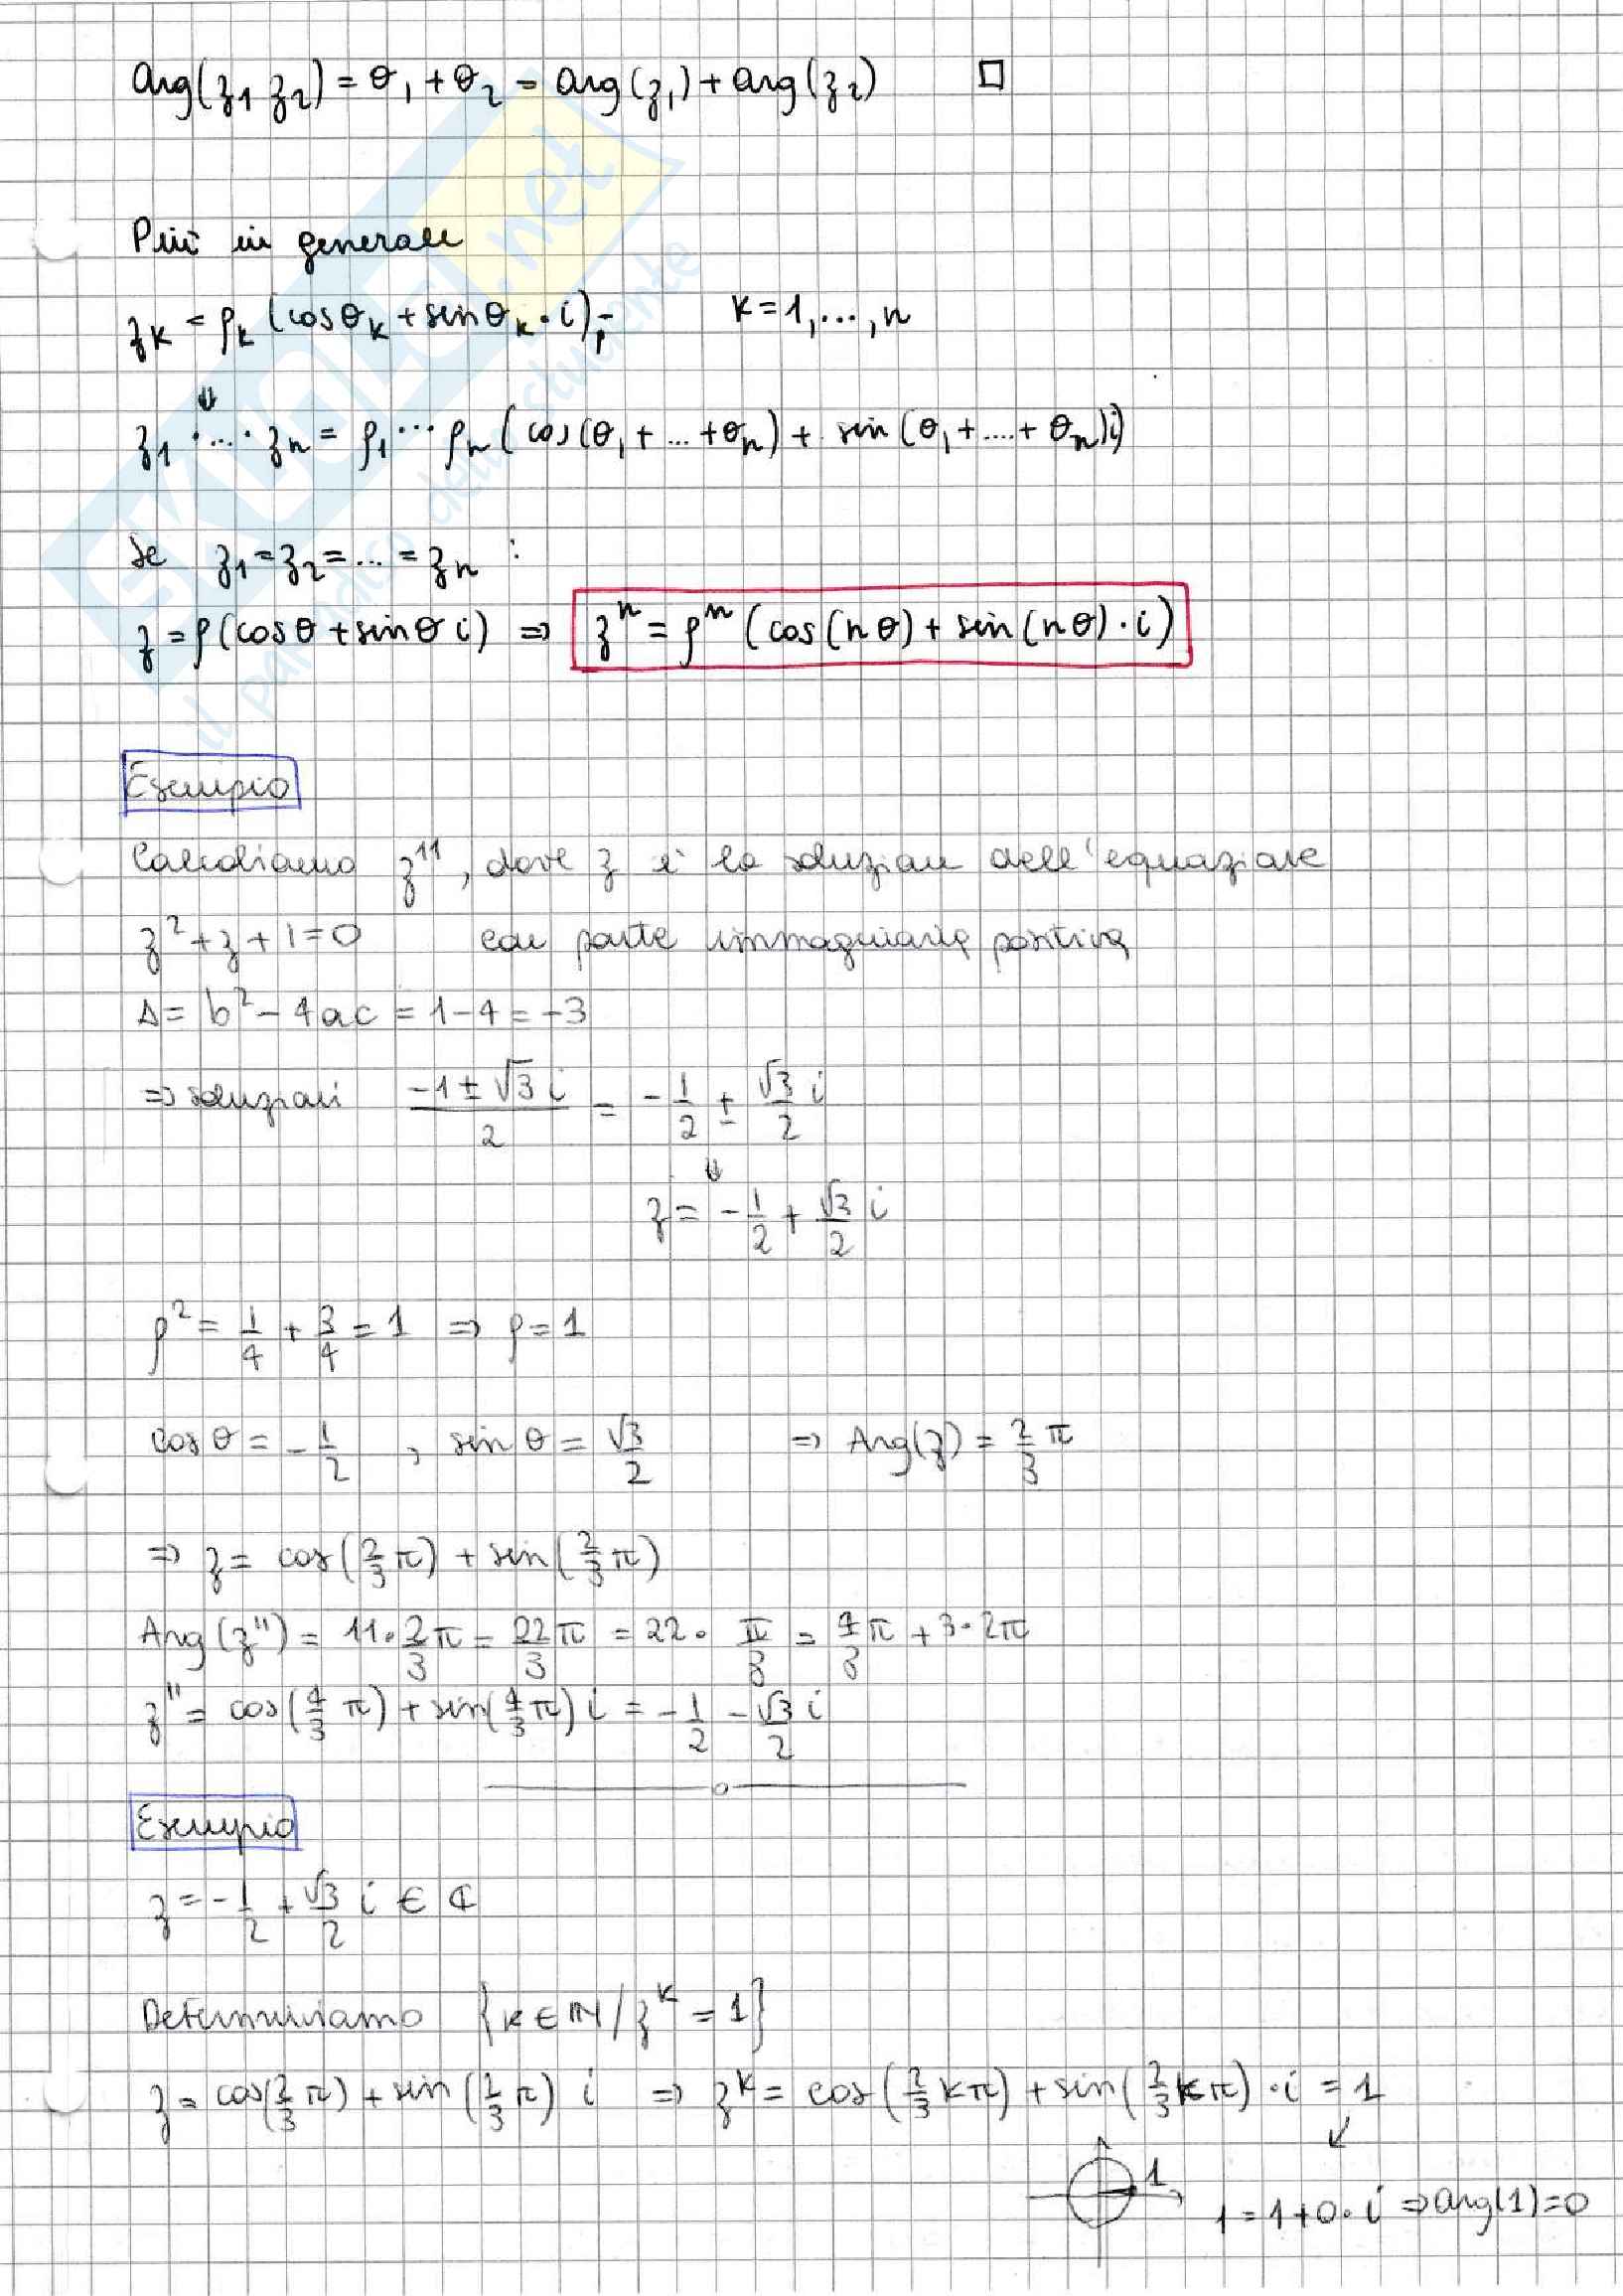 arg(z₁ z₂) = θ₁ + θ₂ = arg(z₁) + arg(z₂) □
Più in generale
z_K = ρ_k (cosθ_k + sinθ_k · i); K = 1, ..., n
⇓
z₁ · ... · z_n = ρ₁ ··· ρ_n (cos(θ₁ + ... + θ_n) + sin(θ₁ + .... + θ_n)i)
Se z₁ = z₂ = ... = z_n :
z = ρ(cosθ + sinθ i) ⇒ zⁿ = ρⁿ (cos(nθ) + sin(nθ) · i)
Esempio
Calcoliamo z¹¹, dove z è la soluzione dell'equazione
z² + z + 1 = 0 con parte immaginaria positiva
Δ = b² - 4ac = 1 - 4 = -3
⇒ soluzioni (-1 ± √3 i)/2 = - 1/2 ± √3/2 i
⇓
z = - 1/2 + √3/2 i
ρ² = 1/4 + 3/4 = 1 ⇒ ρ = 1
cos θ = - 1/2 , sin θ = √3/2 ⇒ Arg(z) = 2/3 π
⇒ z = cos(2/3 π) + sin(2/3 π)
Arg(z¹¹) = 11 · 2/3 π = 22/3 π = 22 · π/3 = 4/3 π + 3 · 2π
z¹¹ = cos(4/3 π) + sin(4/3 π) i = - 1/2 - √3/2 i
Esempio
z = - 1/2 + √3/2 i ∈ ℂ
Determiniamo {K ∈ ℕ / z^K = 1}
z = cos(2/3 π) + sin(2/3 π) i ⇒ z^K = cos(2/3 kπ) + sin(2/3 kπ) · i = 1
↙
1
1 = 1 + 0 · i ⇒ arg(1) = 0
SKUOLA.net
il paradiso dello studente